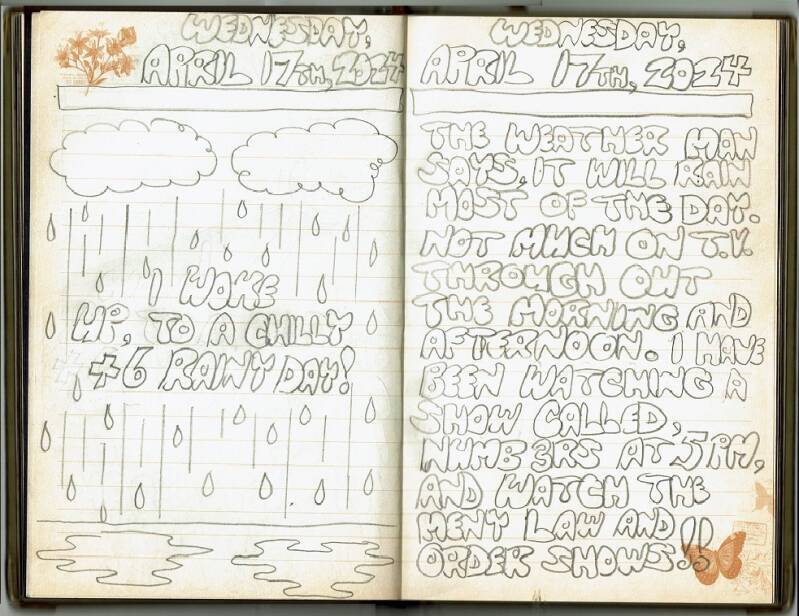 WEDNESDAY,
APRIL 17TH, 2024
I WOKE
UP, TO A CHILLY
46 RAINY DAY!
WEDNESDAY,
APRIL 17TH, 2024
THE WEATHER MAN
SAYS, IT WILL RAIN
MOST OF THE DAY.
NOT MUCH ON T.V.
THROUGH OUT
THE MORNING AND
AFTERNOON. I HAVE
BEEN WATCHING A
SHOW CALLED,
NUMB3RS AT 5PM,
AND WATCH THE
MENY LAW AND
ORDER SHOWS!!